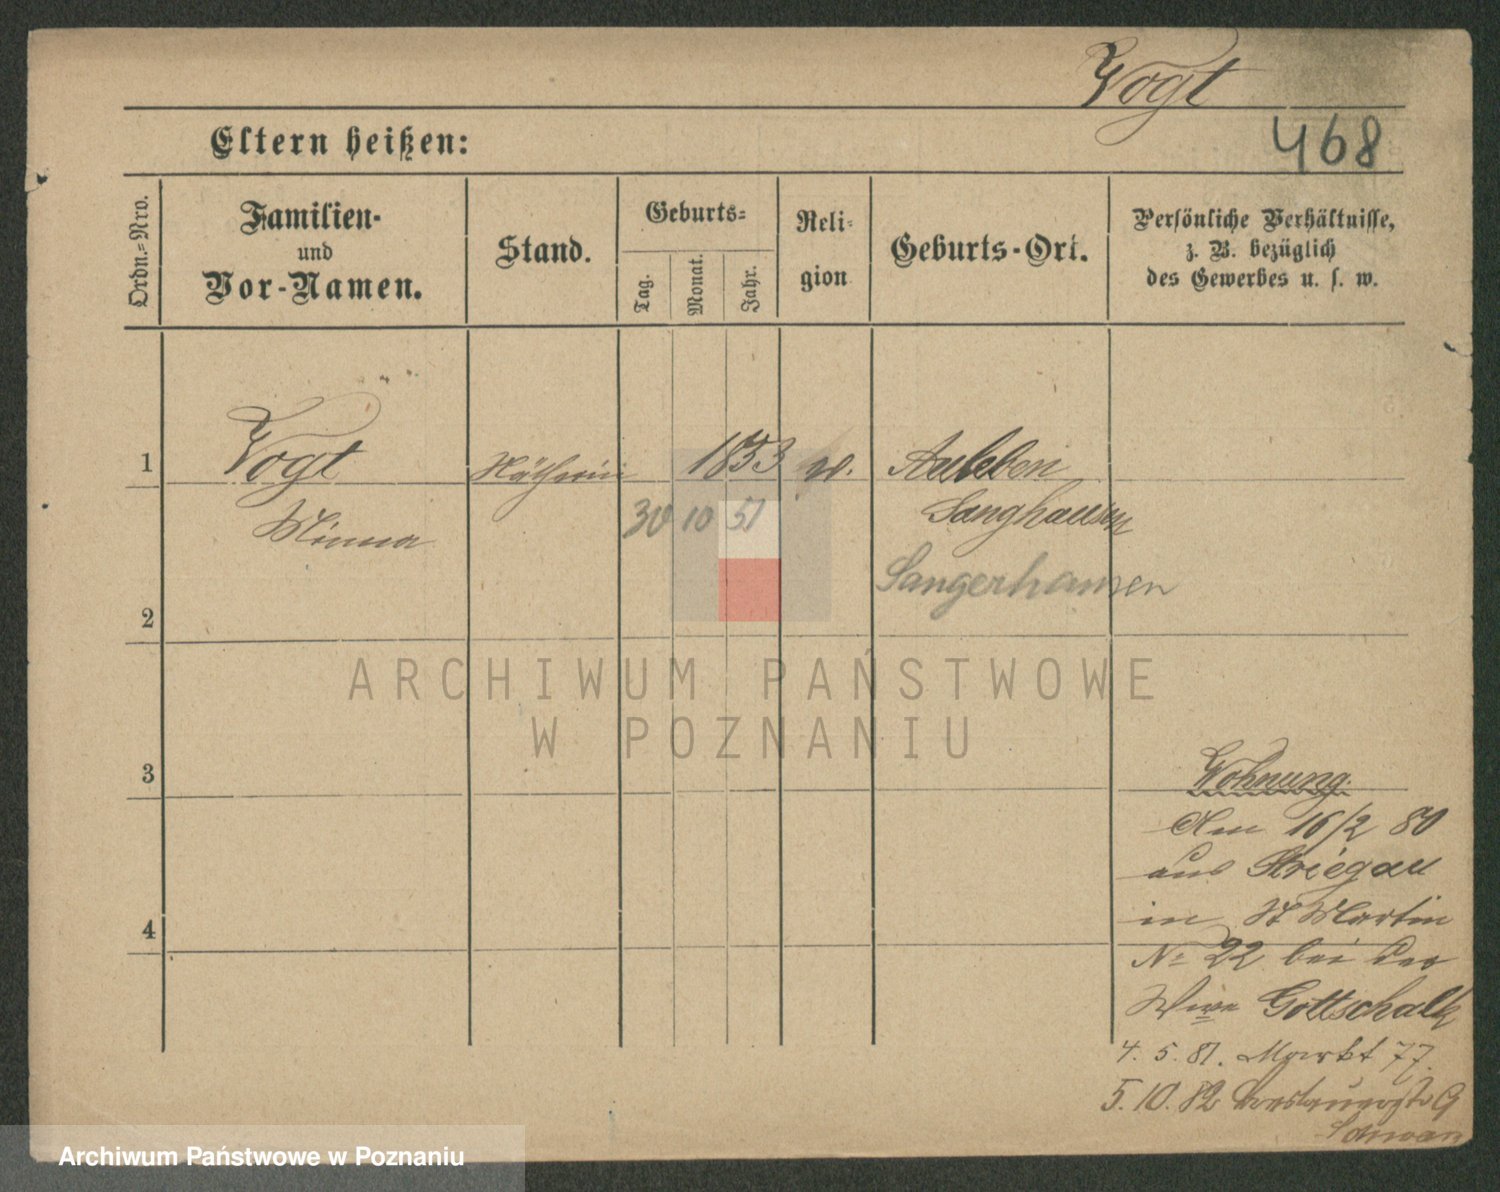 Vogt
468
Eltern heißen:
Ordn.=Nro.
Familien-
und
Vor-Namen.
Stand.
Geburts=
Tag.
Monat.
Jahr.
Reli-
gion
Geburts-Ort.
Persönliche Verhältnisse,
z. B. bezüglich
des Gewerbes u. s. w.
1
Vogt
Näherin
1853
Auleben
Minna
30 10 51
Sanghausen
Sangerhausen
2
ARCHIWUM PAŃSTWOWE
W POZNANIU
3
Wohnung.
Am 16/2 80
aus Striegau
in St Martin
4
No 22 bei der
Wwe Gottschalk
4. 5. 81. Markt 77.
5. 10. 82 9
Archiwum Państwowe w Poznaniu